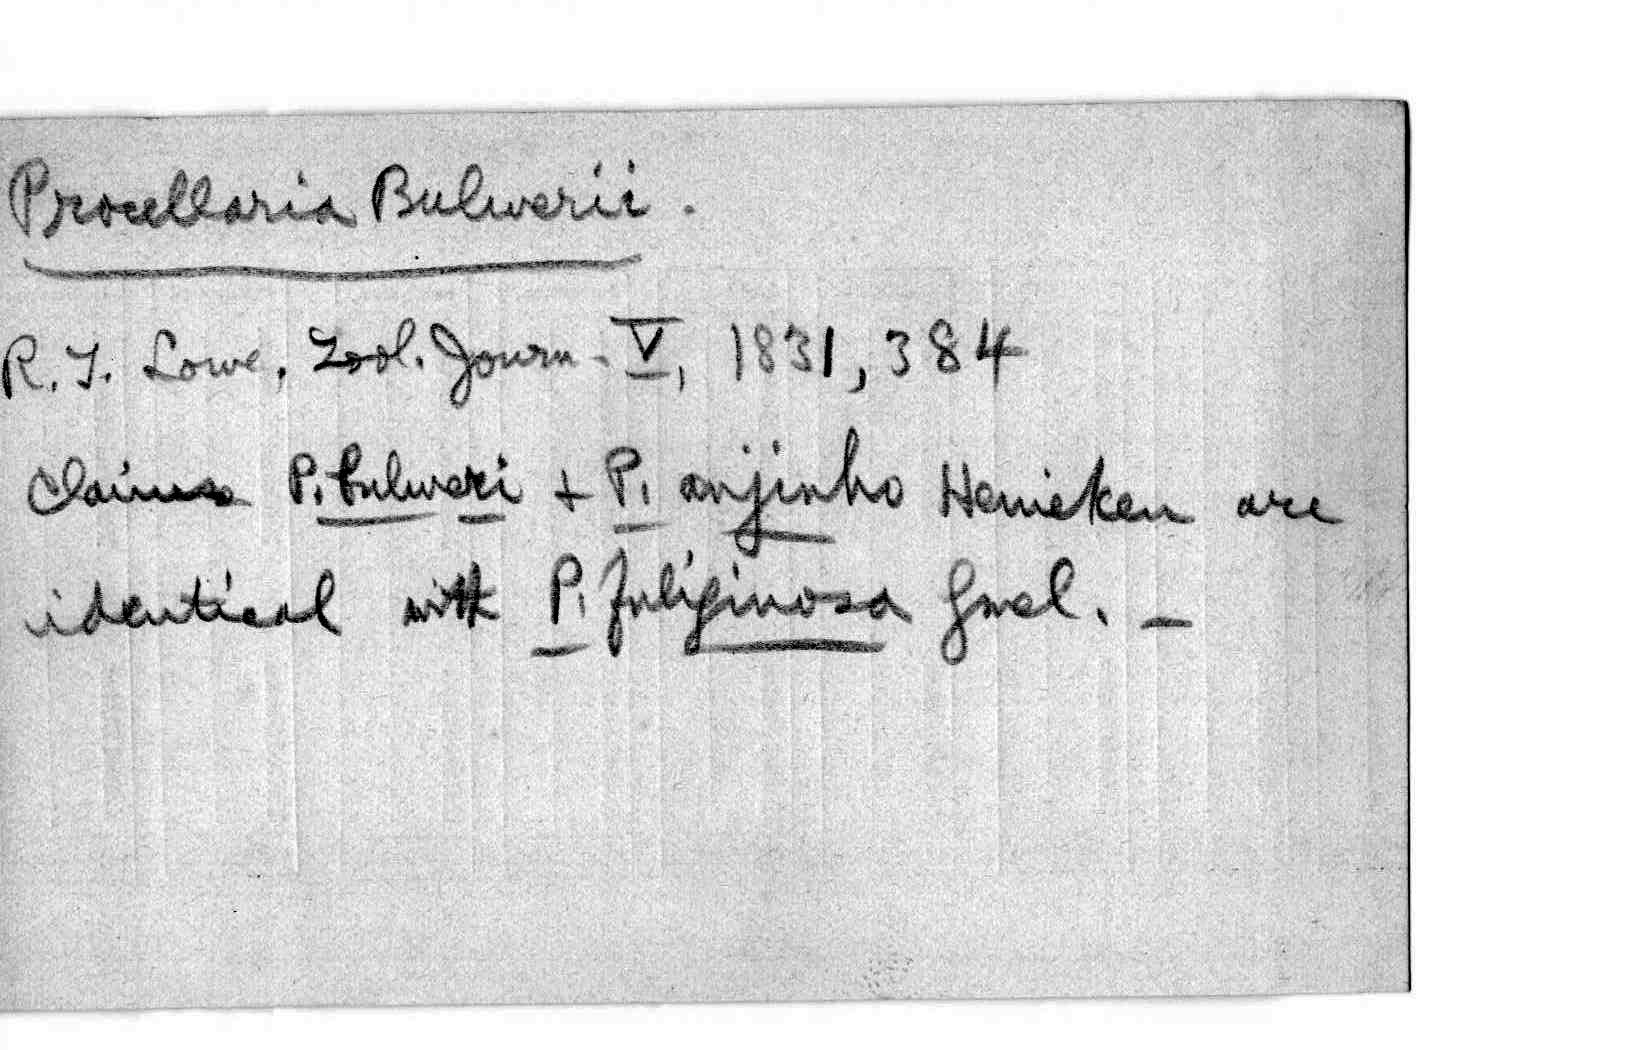 Procellaria Bulwerii.
R. T. Lowe, Zool. Journ. V, 1831, 384
Claims P. bulweri + P. anjinho Heineken are
identical with P. fuliginosa Gmel. —